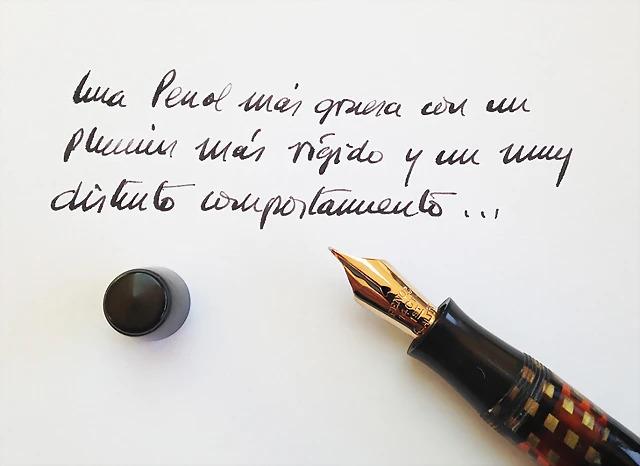 Una Penol más gruesa con un
plumín más rígido y un muy
distinto comportamiento...
PENOL